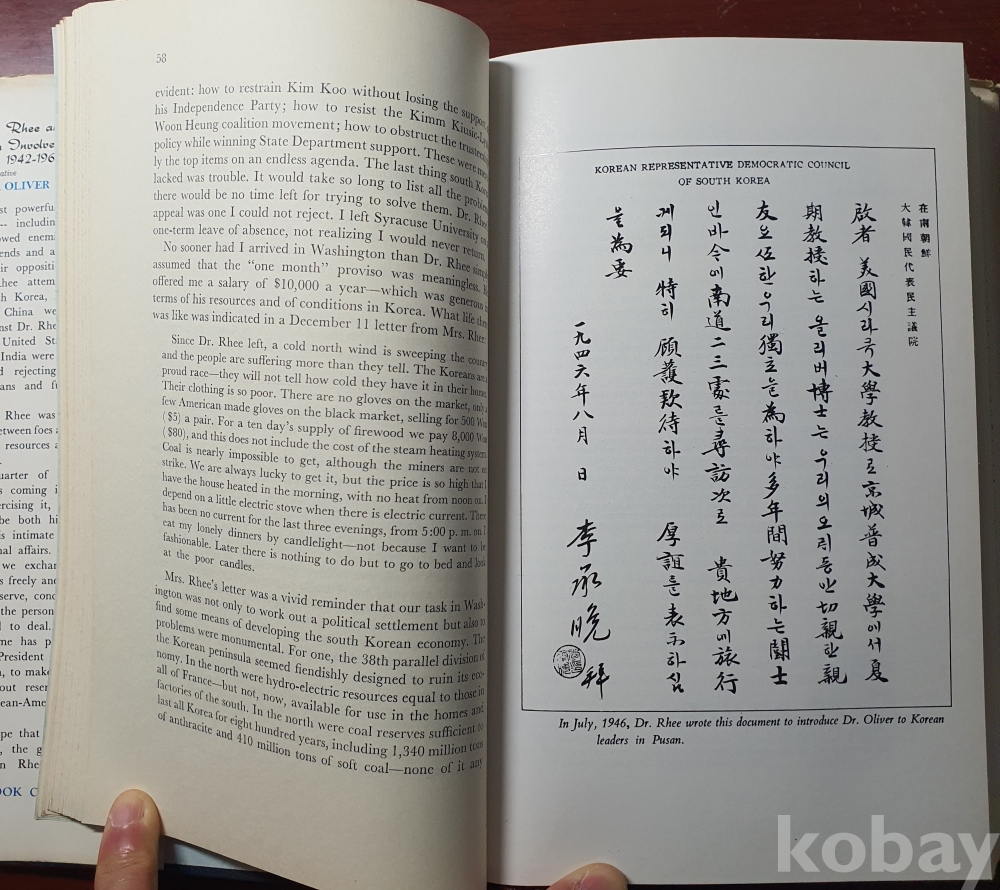 Rhee a
Involve
1942-196
ative
OLIVER
st powerfu
-- includin
owed enem
ends and a
ir oppositi
Rhee attem
th Korea,
China we
nst Dr. Rhe
United St
India were
d rejecting
ans and fu
Rhee was
between foes a
resources a
uarter of
s coming i
ercising it,
be both hi
is intimate
nal affairs.
we exchan
s freely and
serve, conc
the person
d to deal.
me has p
President
n, to make
out reser
ean-Ame
pe that
, the g
n Rhe
OOK C
58
evident: how to restrain Kim Koo without losing the support
his Independence Party; how to resist the Kimm Kiusic-L
Woon Heung coalition movement; how to obstruct the trusteeship
policy while winning State Department support. These were me
ly the top items on an endless agenda. The last thing south Kor
lacked was trouble. It would take so long to list all the problem
there would be no time left for trying to solve them. Dr. Rhee
appeal was one I could not reject. I left Syracuse University on
one-term leave of absence, not realizing I would never return.
No sooner had I arrived in Washington than Dr. Rhee simp
assumed that the "one month" proviso was meaningless. H
offered me a salary of $10,000 a year—which was generous in
terms of his resources and of conditions in Korea. What life the
was like was indicated in a December 11 letter from Mrs. Rhee:
Since Dr. Rhee left, a cold north wind is sweeping the count
and the people are suffering more than they tell. The Koreans are
proud race—they will not tell how cold they have it in their home
Their clothing is so poor. There are no gloves on the market, only a
few American made gloves on the black market, selling for 500 Won
($5) a pair. For a ten day's supply of firewood we pay 8,000 Won
($80), and this does not include the cost of the steam heating system.
Coal is nearly impossible to get, although the miners are not on
strike. We are always lucky to get it, but the price is so high that I
have the house heated in the morning, with no heat from noon on. I
depend on a little electric stove when there is electric current. There
has been no current for the last three evenings, from 5:00 p. m. on. I
eat my lonely dinners by candlelight—not because I want to be
fashionable. Later there is nothing to do but to go to bed and look
at the poor candles.
Mrs. Rhee's letter was a vivid reminder that our task in Wash-
ington was not only to work out a political settlement but also to
find some means of developing the south Korean economy. The
problems were monumental. For one, the 38th parallel division of
the Korean peninsula seemed fiendishly designed to ruin its eco-
nomy. In the north were hydro-electric resources equal to those in
all of France—but not, now, available for use in the homes and
factories of the south. In the north were coal reserves sufficient to
last all Korea for eight hundred years, including 1,340 million tons
of anthracite and 410 million tons of soft coal—none of it any
KOREAN REPRESENTATIVE DEMOCRATIC COUNCIL
OF SOUTH KOREA
在南朝鮮
大韓國民代表民主議院
啟者 美國시라큐大學敎授로京城普成大學에서夏
期敎授하는올리버博士는우리의오래동안切親한親
友요또한우리獨立을為하야多年間努力하는鬪士
인바今에南道二三處를尋訪次로 貴地方에旅行
케되니 特히 顧護欵待하야 厚誼를表示하심
을為要
一九四六年八月 日 李承晩 拜
In July, 1946, Dr. Rhee wrote this document to introduce Dr. Oliver to Korean
leaders in Pusan.
kobay